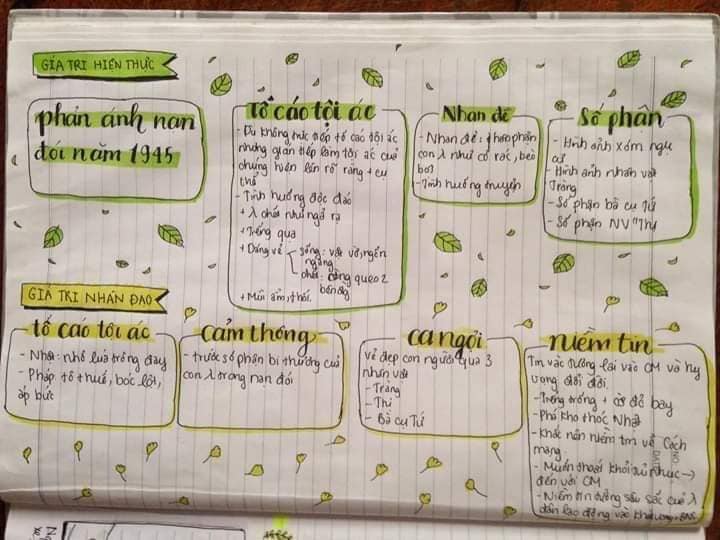 GIÁ TRỊ HIỆN THỰC
phản ánh nạn
đói năm 1945
Tố cáo tội ác
- Dù không trực tiếp tố cáo tội ác
nhưng gián tiếp làm tội ác của
chúng hiện lên rõ ràng + cụ
thể
- Tình huống độc đáo
+ λ chết như ngả rạ
+ Tiếng quạ
+ Dáng vẻ
sống: vật vờ, ngổn
ngang
chết: còng queo 2
bên đg
+ Mùi ẩm, thối.
Nhan đề
- Nhan đề: thân phận
con λ như cỏ rác, bèo
bọt
- Tình huống truyện
Số phận
- Hình ảnh xóm ngụ
cư
- Hình ảnh nhân vật
Tràng
- Số phận bà cụ Tứ
- Số phận NV "Thị
GIÁ TRỊ NHÂN ĐẠO
tố cáo tội ác
- Nhật: nhổ lúa trồng đay
- Pháp tô thuế, bóc lột,
áp bức
cảm thông
- trước số phận bi thương của
con λ trong nạn đói
ca ngợi
vẻ đẹp con người qua 3
nhân vật
- Tràng
- Thị
- Bà cụ Tứ
niềm tin
Tin vào tương lai vào CM và hy
vọng đổi đời.
- Tiếng trống + cờ đỏ bay
- Phá kho thóc Nhật
- Khắc hoạ niềm tin về Cách
mạng
- Muốn thoát khỏi tủi nhục →
đến với CM
- Niềm tin tưởng sâu sắc của λ
dân lao động vào